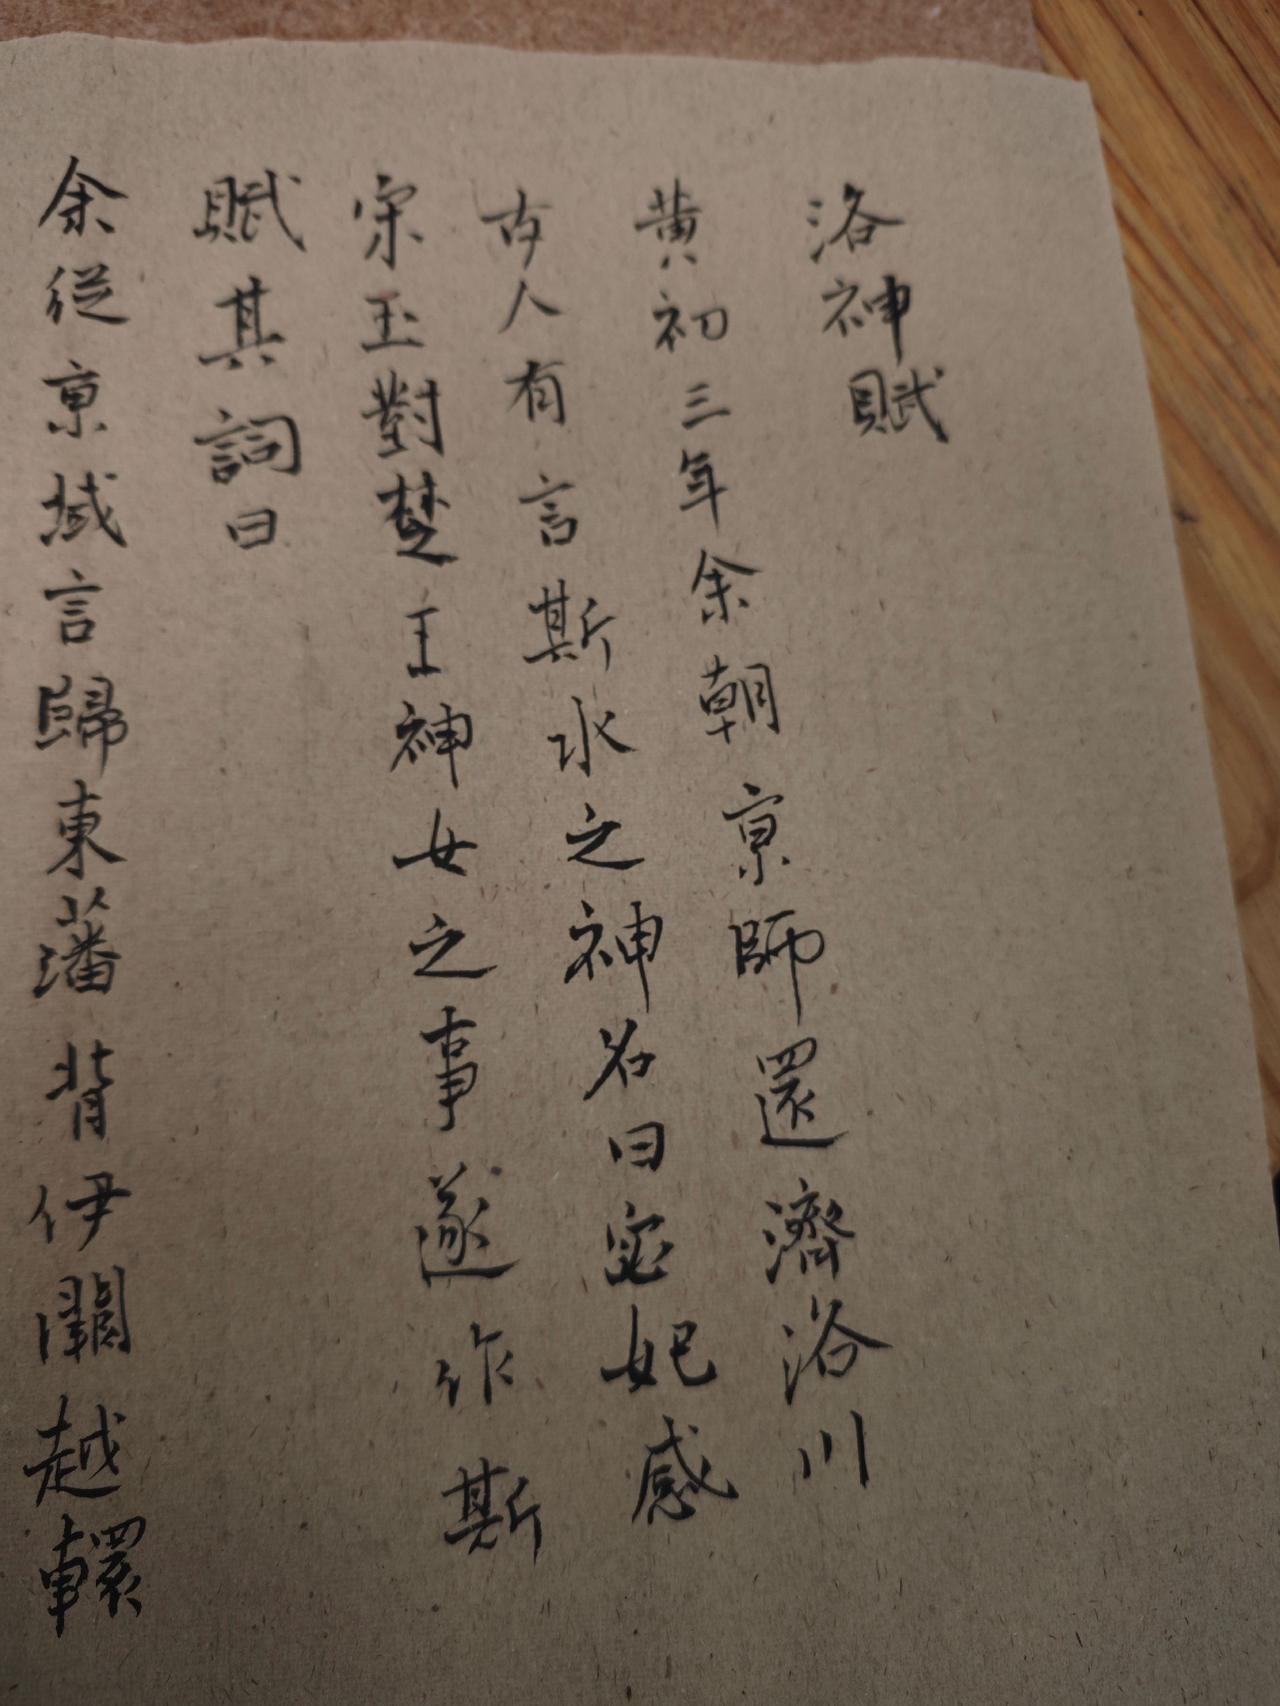 洛神賦
黃初三年余朝京師還濟洛川
古人有言斯水之神名曰宓妃感
宋玉對楚王神女之事遂作斯
賦其詞曰
余從京域言歸東藩背伊闕越轘